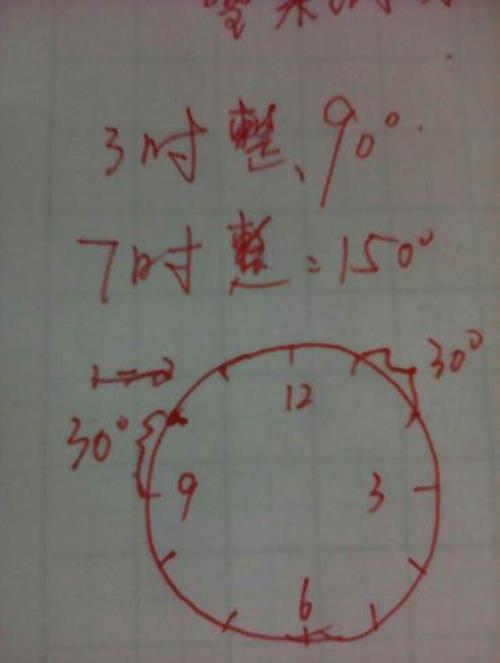 3时整、90°
7时整:150°
30°
12
30°
9
3
6